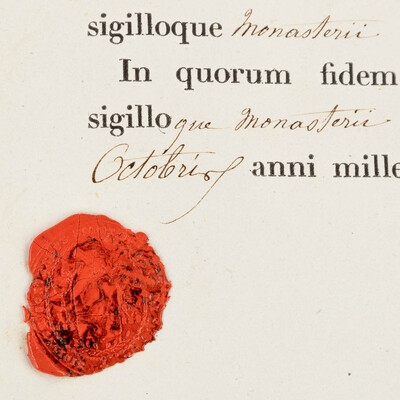 sigilloque Monasterii
In quorum fidem
sigilloque Monasterii
Octobris anni mille